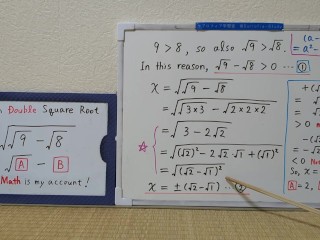 Double Square Root
√(√9 - √8)
√A - √B
Math is my account!
9 > 8, so also √9 > √8.
In this reason, √9 - √8 > 0 … ①
x = √(√9 - √8)
= √(√(3×3) - √(2×2×2))
= √(3 - 2√2)
☆
= √((√2)² - 2√2·√1 + (√1)²)
= √((√2 - √1)²)
x = ± (√2 - √1) … ②
(a -
= a² -
+(√
= √
> 0
-(√
= -√
< 0 No
So, x =
A = 2,